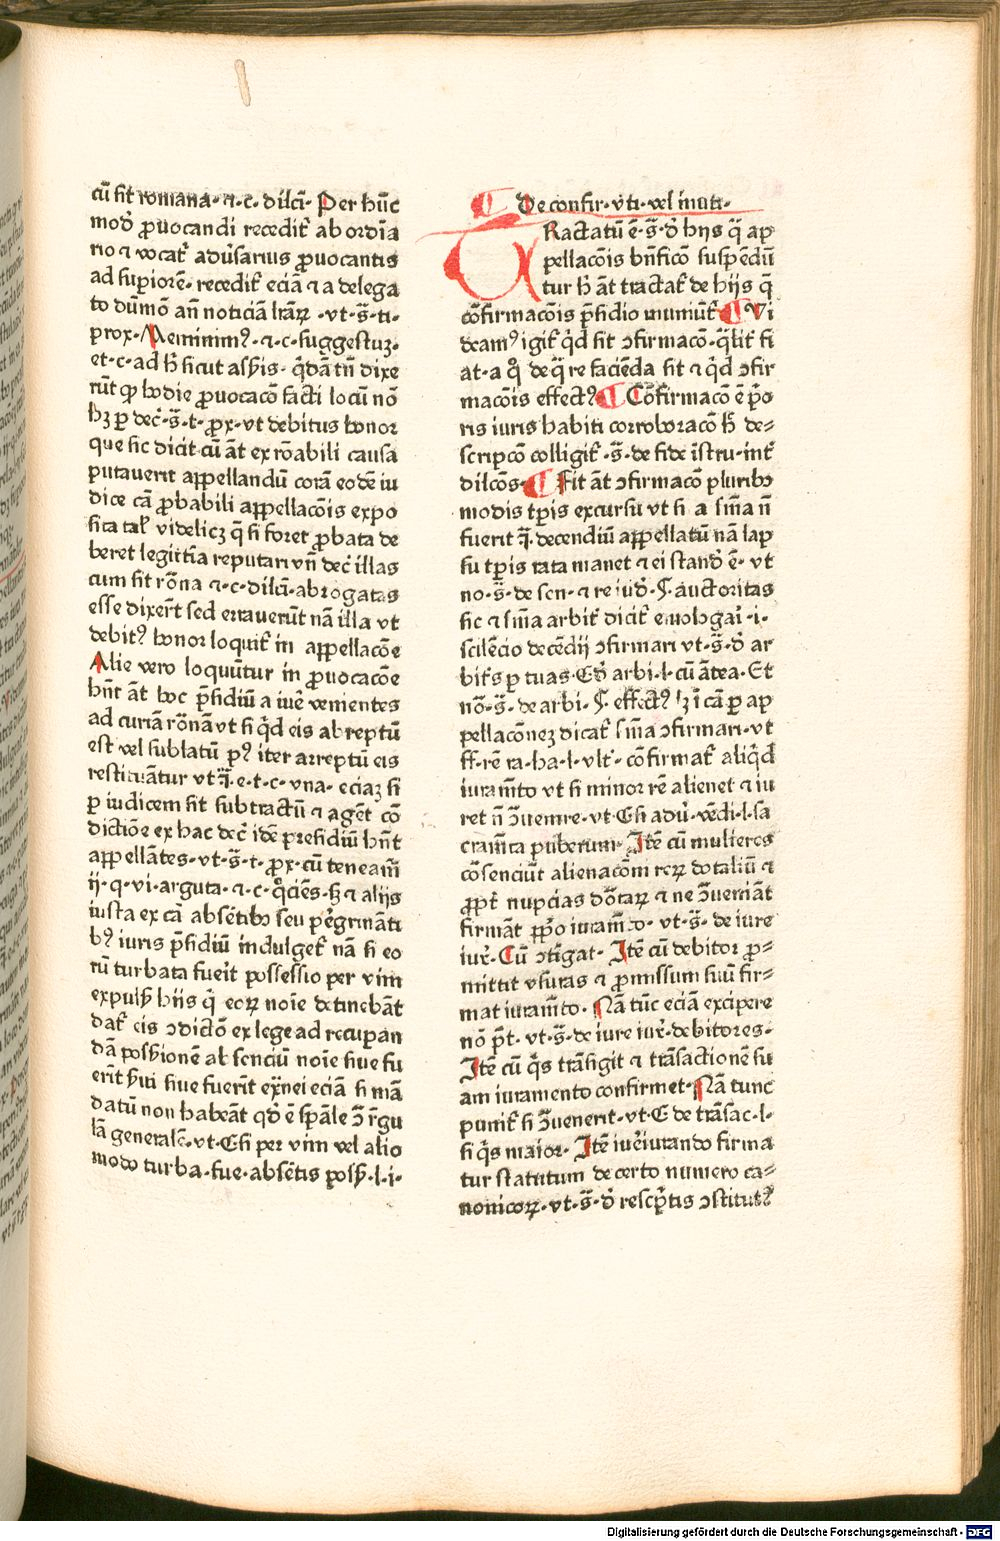 cū sit romana · ⁊ · c · dilc̄i · Per hūc
modū ꝓuocandi recedit᷑ ab ordīa
rio ⁊ vocat᷑ aduersarius ꝓuocantis
ad supiorē · recedit᷑ eciā ⁊ a delega
to dūmō an̄ noticiā lrāꝝ · vt · s̄ · ti ·
prox · Meminimꝰ · ⁊ · c · suggestuꝫ ·
et · c · ad h̄ sicut asp̄is · q̄dā tn̄ dixe
rūt ꝙ hodie ꝓuocacō facti locū nō
hꝫ ꝑ dec̄ · s̄ · t · ꝓx · vt debitus honor
que sic dicit cū āt ex rōabili causa
putauerit appellandū corā eodē iu
dice cā ꝓbabili appellacōis expo
sita tal᷑ videlicꝫ q̄ si foret ꝓbata de
beret legittīa reputari vn̄ dec̄ illas
cum sit rōna ⁊ · c · dilc̄i · abrogatas
esse dixert̄ sed errauerūt nā illa vt
debitꝰ honor loquit᷑ in appellacōe
Alie vero loquūtur in ꝓuocacōe
hn̄t āt hoc p̄sidiū a iuē venientes
ad curiā rōnā vt si qd̄ eis abreptū
est vel sublatū pꝰ iter arreptū eis
restituātur vt · e · t · c · vna · eciaꝫ si
ꝑ iudicem sit subtractū ⁊ agēt cō
dictiōe ex hac dec̄ idē presidiū hn̄t
appellātes · vt · s̄ · t · ꝓx · cū teneam̄
ij · q · vi · arguta · ⁊ · c · qciēs · h̄ ⁊ alijs
iusta ex cā absētibꝰ seu pegrinātibꝰ
iuris p̄sidiū indulget᷑ nā si eo
rū turbata fuerit possessio per vim
expulsꝭ hijs q̄ eoꝝ noīe detinebāt
dat᷑ eis ɔdictō ex lege ad recupan
dā possionē absenciū noīe siue fu
erīt serui siue fuerīt ext̄nei eciā si mā
datū non habeāt qd̄ ē spāle ɔ regu
lā generalē · vt · C si per vim vel alio
modo turba · sue · absētis poss · l · i ·
De confir · vti · vel inuti ·
TRactatū ē · s̄ · d̄ hijs q̄ ap
pellacōis bn̄ficō suspēdū
tur h̄ āt tractat᷑ de hijs q̄
cōfirmacōis p̄sidio muniūt᷑ Vi
deamꝰ igit᷑ qd̄ sit ɔfirmacō · qlit᷑ fi
at · a qͦ de q̄ re facienda sit ⁊ qd̄ ɔfir
macōis effectꝰ Cōfirmacō ē prio
ris iuris habiti corroboracō h̄ de⸗
scripcō colligit᷑ · s̄ · de fide īstru · int᷑
dilcōs · Fit āt ɔfirmacō pluribꝰ
modis tꝑis excursu vt si a snīa n̄
fuerit · decendiū appellatū nā lap
su tꝑis rata manet ⁊ ei stand̄ ē · vt
no · s̄ · de sen · ⁊ re iud̄ · §. auctoritas
sic ⁊ snīa arbit᷑ dicit᷑ emologari · i ·
scilēcio decēdij ɔfirmari vt · s̄ · d̄ ar
bitrīs ꝑ tuas · C d̄ arbi · l · cū ātea · Et
nō · s̄ · de arbi · §. effectꝰ ꝫ icā ꝑ ap
pellacōneꝫ dicat᷑ snīa ɔfirmari · vt
ff · rē ra · ha · l · vlt᷑ · cōfirmat᷑ aliqd̄
iuramēto vt si minor rē alienet ⁊ iu
ret n̄ ɔuenire · vt · C si adu᷑ · vēdi · l · sa
cramēta puberum · Itē cū mulieres
cōsenciūt alienacōni reꝝ dotaliū ⁊
ꝓpt᷑ nupcias dōtaꝝ ⁊ ne ɔueniāt
firmāt ꝓprio iuramēto · vt · s̄ · de iure
iur᷑ · Cū ɔtigat · Itē cū debitor ꝓ⸗
mittit vsuras ⁊ ꝓmissum suū fir⸗
mat iuramēto · Nā tūc eciā excipere
nō pt̄ · vt · s̄ · de iure iur᷑ · debitores ·
Itē cū qs trāsigit ⁊ trāsactionē su
am iuramento confirmet · Nā tunc
punit᷑ si ɔuenerit · vt · C de trāsac · l ·
si qs maior · Itē iureiurando firma
tur statutum de certo numero ca⸗
nonicoꝝ · vt · s̄ · d̄ rescptis ɔstitutꝰ
Digitalisierung gefördert durch die Deutsche Forschungsgemeinschaft - DFG